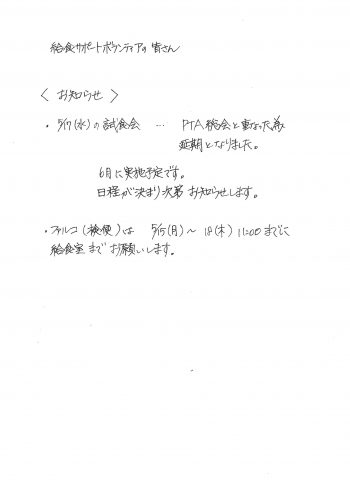 給食サポートボランティアの皆さん
〈 お知らせ 〉
・ 5/17(水)の試食会 … PTA総会と重なった為
延期となりました。
6月に実施予定です。
日程が決まり次第お知らせします。
・ フォルコ(検便)は 5/15(月)〜 18(木) 11:00 までに
給食室まで お願いします。